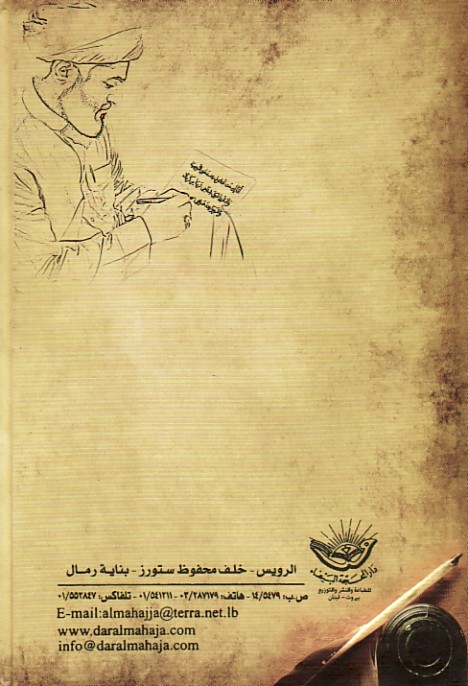 دار المحجة البيضاء
للطباعة والنشر والتوزيع
بيروت - لبنان
الرويس - خلف محفوظ ستورز - بناية رمال
ص.ب: ١٤/٥٤٧٩ - هاتف: ٠٣/٢٨٧١٧٩ - ٠١/٥٤١٢١١ - تلفاكس: ٠١/٥٥٢٨٤٧
E-mail:almahajja@terra.net.lb
www.daralmahaja.com
info@daralmahaja.com